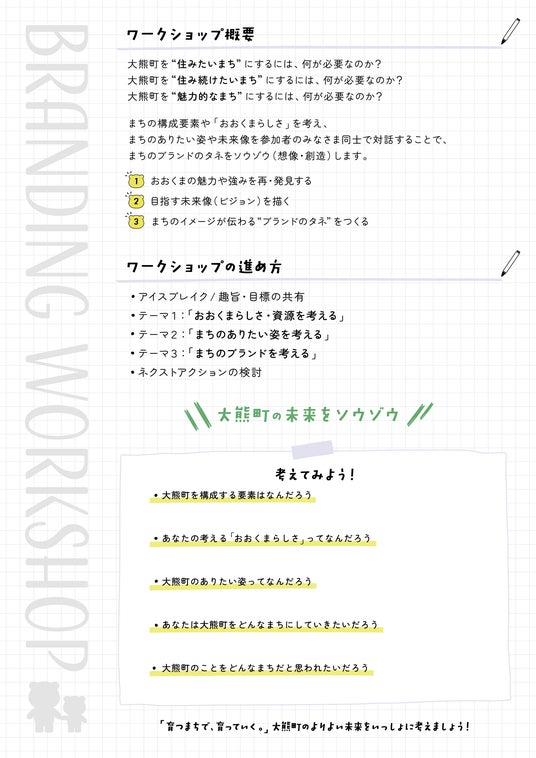 BRANDING WORKSHOP
ワークショップ概要
大熊町を“住みたいまち”にするには、何が必要なのか？
大熊町を“住み続けたいまち”にするには、何が必要なのか？
大熊町を“魅力的なまち”にするには、何が必要なのか？
まちの構成要素や「おおくまらしさ」を考え、
まちのありたい姿や未来像を参加者のみなさま同士で対話することで、
まちのブランドのタネをソウゾウ（想像・創造）します。
1 おおくまの魅力や強みを再・発見する
2 目指す未来像（ビジョン）を描く
3 まちのイメージが伝わる“ブランドのタネ”をつくる
ワークショップの進め方
・アイスブレイク / 趣旨・目標の共有
・テーマ1：「おおくまらしさ・資源を考える」
・テーマ2：「まちのありたい姿を考える」
・テーマ3：「まちのブランドを考える」
・ネクストアクションの検討
大熊町の未来をソウゾウ
考えてみよう！
・大熊町を構成する要素はなんだろう
・あなたの考える「おおくまらしさ」ってなんだろう
・大熊町のありたい姿ってなんだろう
・あなたは大熊町をどんなまちにしていきたいだろう
・大熊町のことをどんなまちだと思われたいだろう
「育つまちで、育っていく。」大熊町のよりよい未来をいっしょに考えましょう！